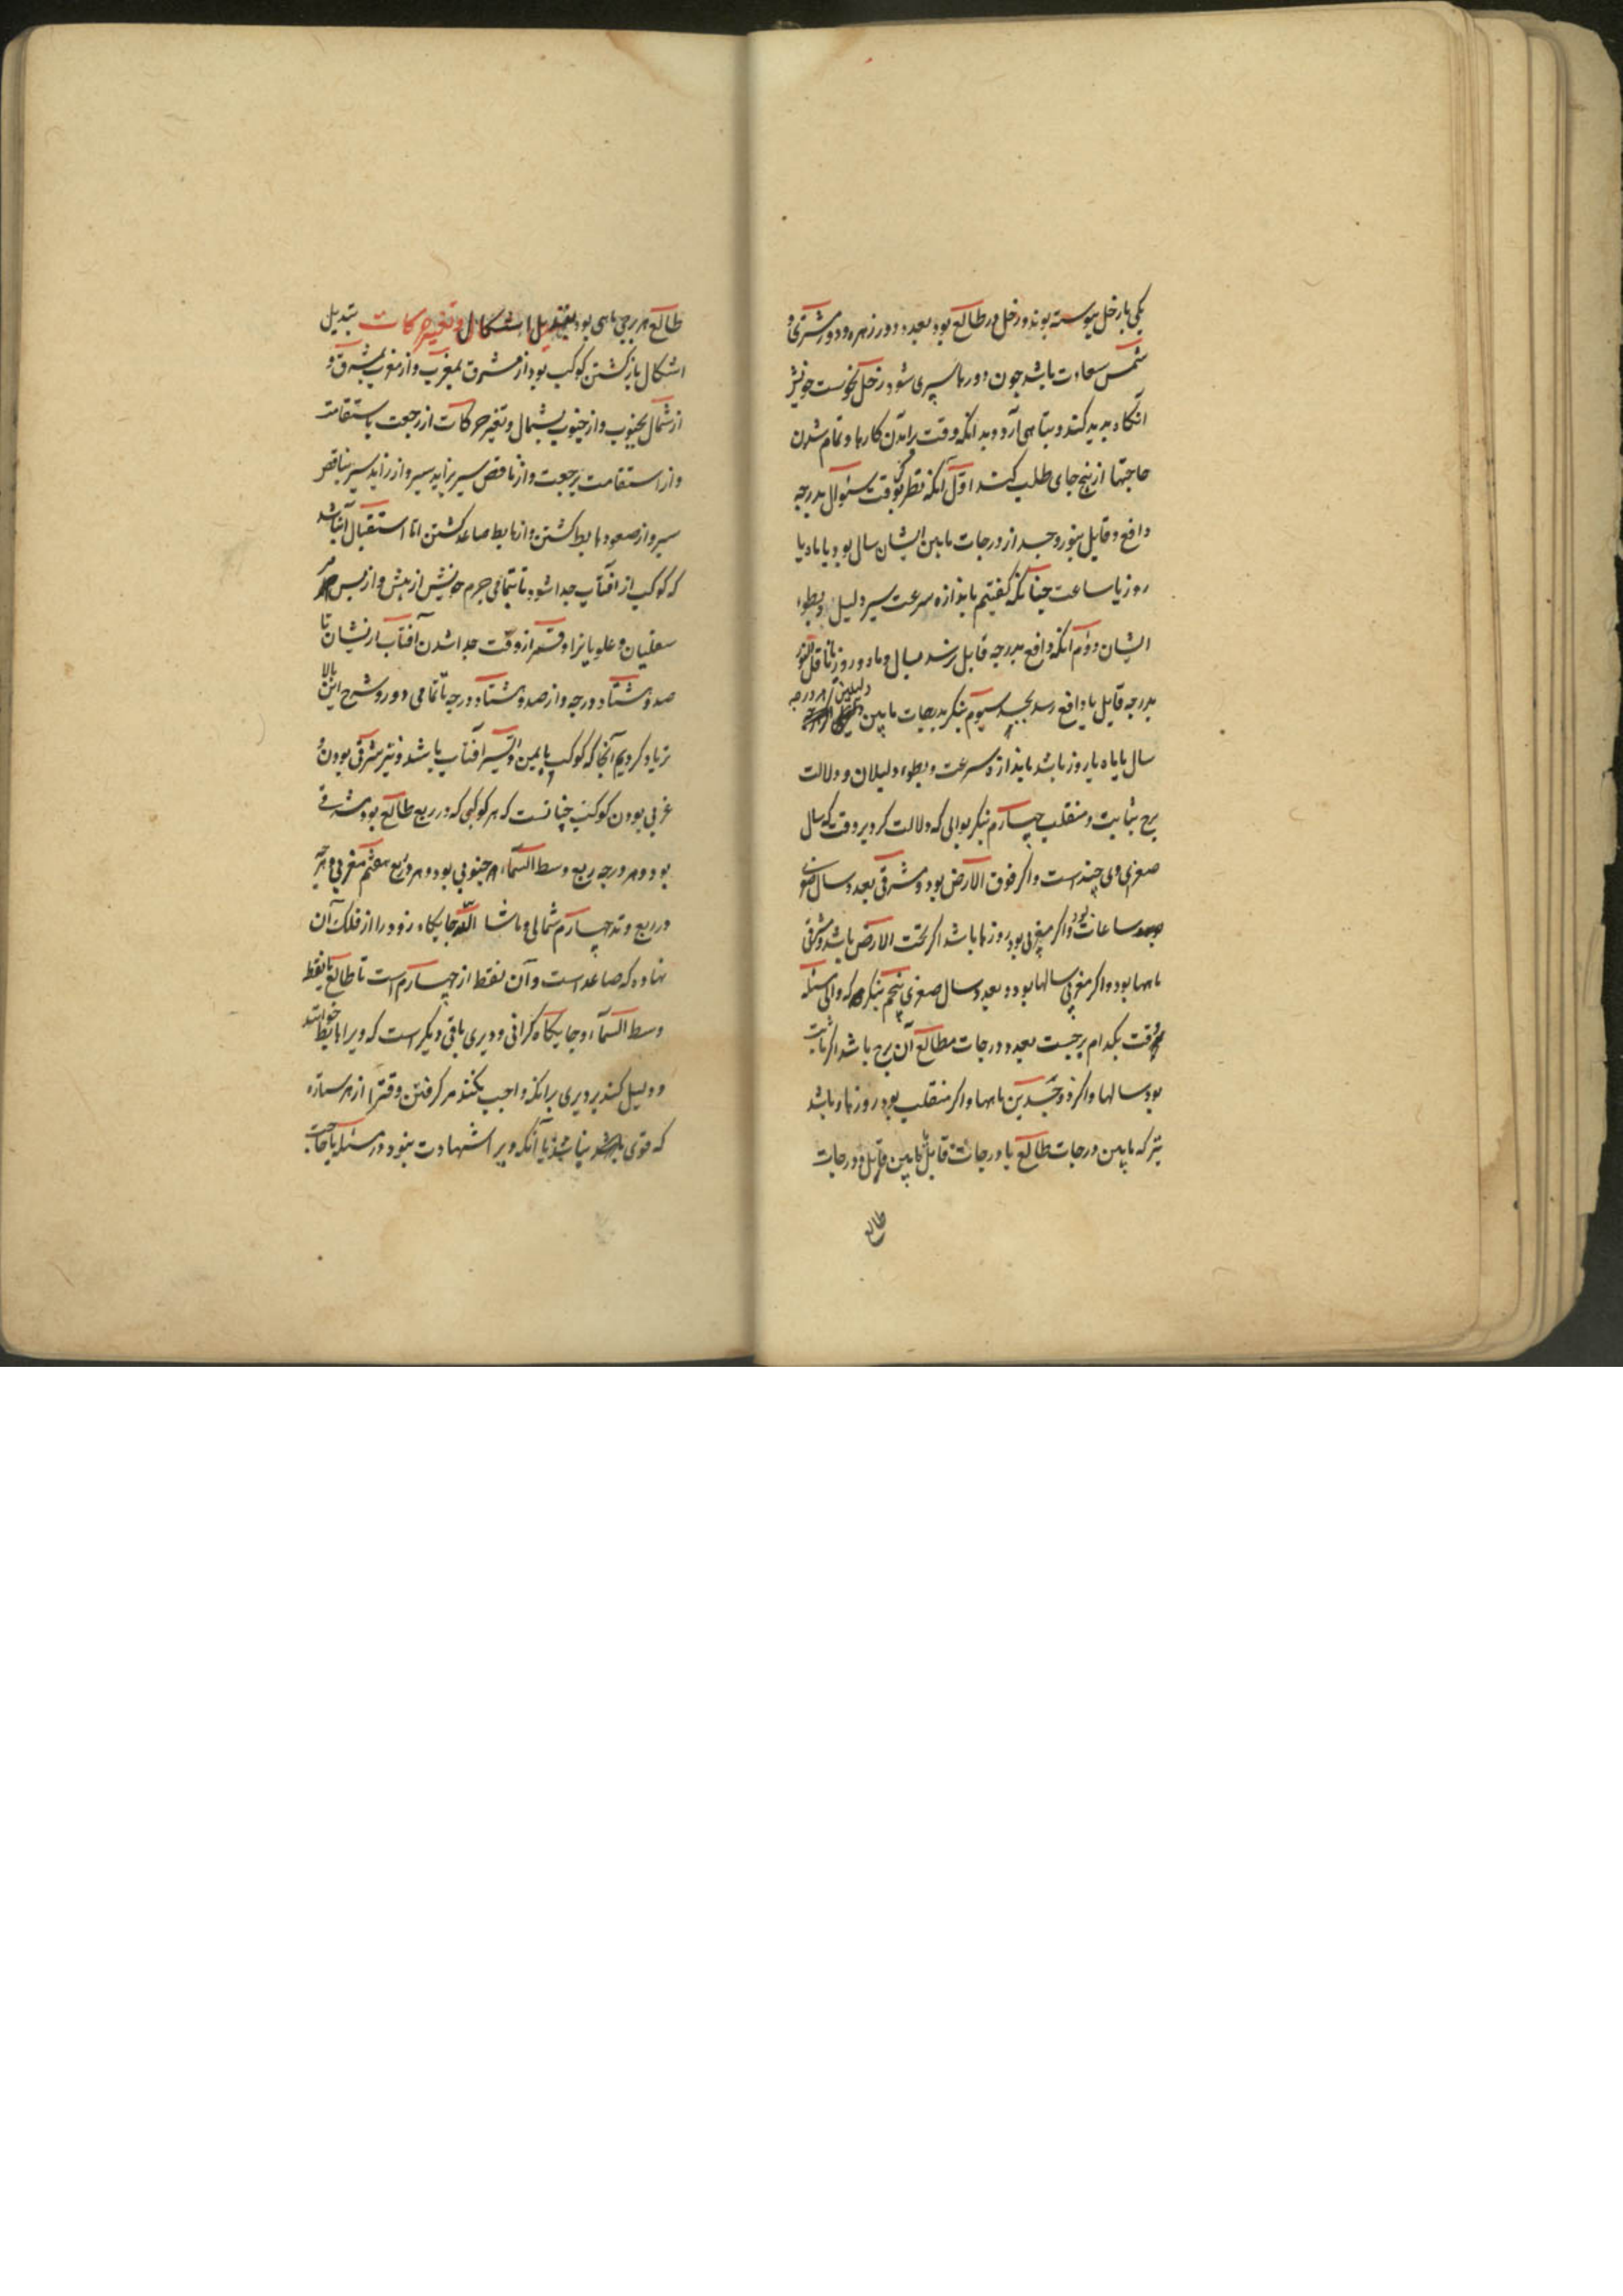 یکی بازحل پیوسته بوند و زحل در طالع بود بعدد دور زهره و دور مشتری و
شمس سعادت باشد چون دورها سپری شود زحل نحوست خویش
آنگاه پدید کند و بتباهی آرد و بدانکه وقت براندن کارها و تمام شدن
حاجتها از پنج جای طلب کنند اول آنکه نظر کن بوقت سئوال بدرجه
دافع و قابل بنور و جسد از درجات مابین ایشان سال بود یا ماه یا
روز یا ساعت چنانکه گفتیم باندازه سرعت سیر دلیل و بطوء
ایشان دوم آنکه دافع بدرجه قابل رسد بسال و ماه و روز یا ناقل النور
بدرجه قابل یا دافع رسد بجسد سیوم بنکر بدرجات مابین دلیلین هر درجه
سال یا ماه یا روز باشد باندازه سرعت و بطوء دلیلان و دلالت
برج ثابت و منقلب چهارم بنکر بوالی که دلالت کرد بر وقت که سال
صغری وی چند است و اکر فوق الارض بود و مشرقی بعدد سال صغری
ساعات بود و اکر مغربی بود روزها باشد اکر تحت الارض باشد و مشرقی
ماهها بود و اکر مغربی سالها بود و بعدد سال صغری پنجم بنکر که والی مسئله
وقت بکدام برجست بعدد درجات مطالع آن برج باشد اکر ثابت
بود سالها و اکر ذو جسدین ماهها و اکر منقلب بود روزها و باشد
نیز که مابین درجات طالع یا درجات قابل یا مابین قابل و درجات
طالع
طالع هر برجی ماهی بود تبدیل اشکال و تغییر حرکات تبدیل
اشکال بازکشتن کوکب بود از مشرق بمغرب و از مغرب بمشرق و
از شمال بجنوب و از جنوب بشمال و تغیر حرکات از رجعت باستقامت
و از استقامت برجعت و از ناقص سیر بزاید سیر و از زاید سیر بناقص
سیر و از صعود هابط کشتن و از هابط صاعد کشتن اما استقبال آن باشد
که کوکب از آفتاب جدا شود بتمامی جرم خویش از پیش و از پس مر
سفلیان و علویانرا و قمر از وقت جدا شدن آفتاب ازیشان تا
صد و هشتاد درجه و از صد و هشتاد درجه تا تمامی دور و شرح این بالا
تر یاد کردیم آنجا که کوکب بایمین و ایسر آفتاب باشد و نیز مشرقی بودن و
غربی بودن کوکب چنانست که هر کوکبی که در ربع طالع بود مشرقی
بود و هر درجه ربع وسط السماء جنوبی بود و هر در ربع هفتم مغربی و هرچه
در ربع وتد چهارم شمالی و ماشا الله جایکاه زود را از فلک آن
نهاده که صاعد است و آن نقط از چهارم است تا طالع تا بنقط
وسط السماء و جایکاه کرانی و دیری باقی دیکر است که ویرا هابط خوانند
و دلیل کند بر دیری برانکه واجب نکند مر کرفتن وقترا از هر ستاره
که قوی نباشد یا آنکه ویرا شهادت نبود در مسئله یا حاجت